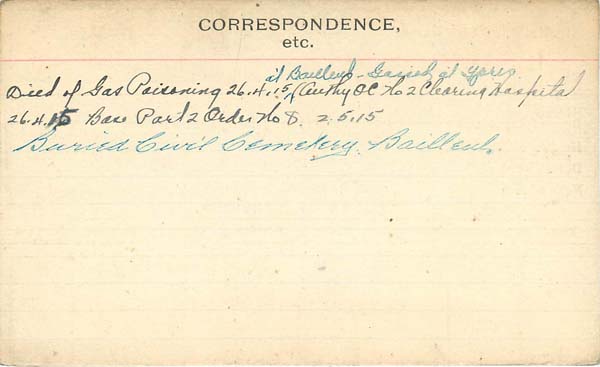 CORRESPONDENCE,
etc.
at Bailleul - Gassed at Ypres
Died of Gas Poisoning 26.4.15 (Authy OC No 2 Clearing Hospital
26.4.15 Base Part 2 Order No 8. 2.5.15
Buried Civil Cemetery. Bailleul.